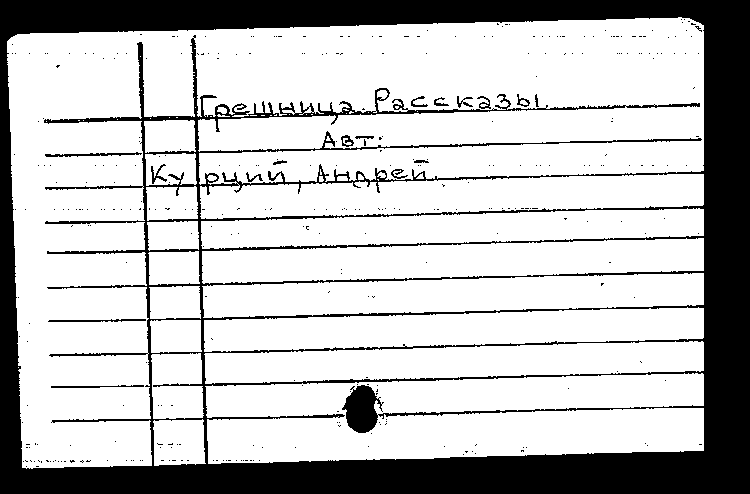 Грешница. Рассказы.
Авт:
Курций, Андрей.